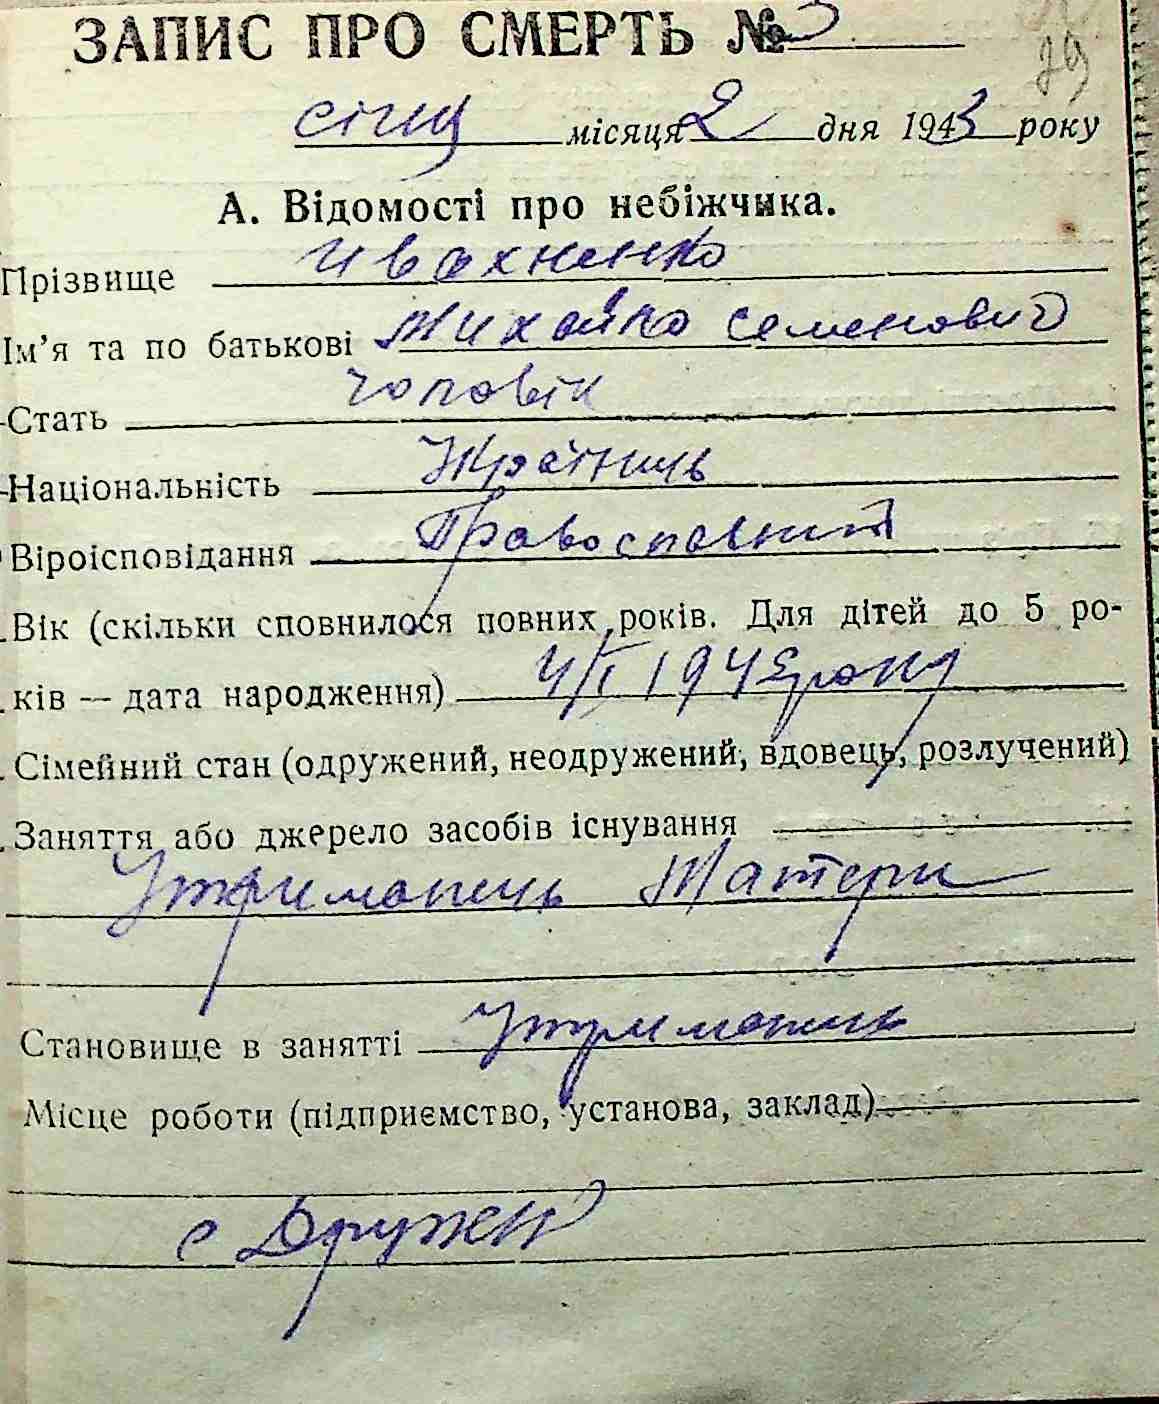 ЗАПИС ПРО СМЕРТЬ № 3
29
січня місяця 2 дня 1943 року
А. Відомості про небіжчика.
Прізвище Ивахненко
Ім'я та по батькові Михайло Семенович
Стать чоловік
Національність Українець
Віроісповідання Православний
Вік (скільки сповнилося повних років. Для дітей до 5 ро-
ків — дата народження) 4/I 1942 року
Сімейний стан (одружений, неодружений, вдовець, розлучений)
Заняття або джерело засобів існування
Утриманець Матери
Становище в занятті Утриманець
Місце роботи (підприємство, установа, заклад)
с